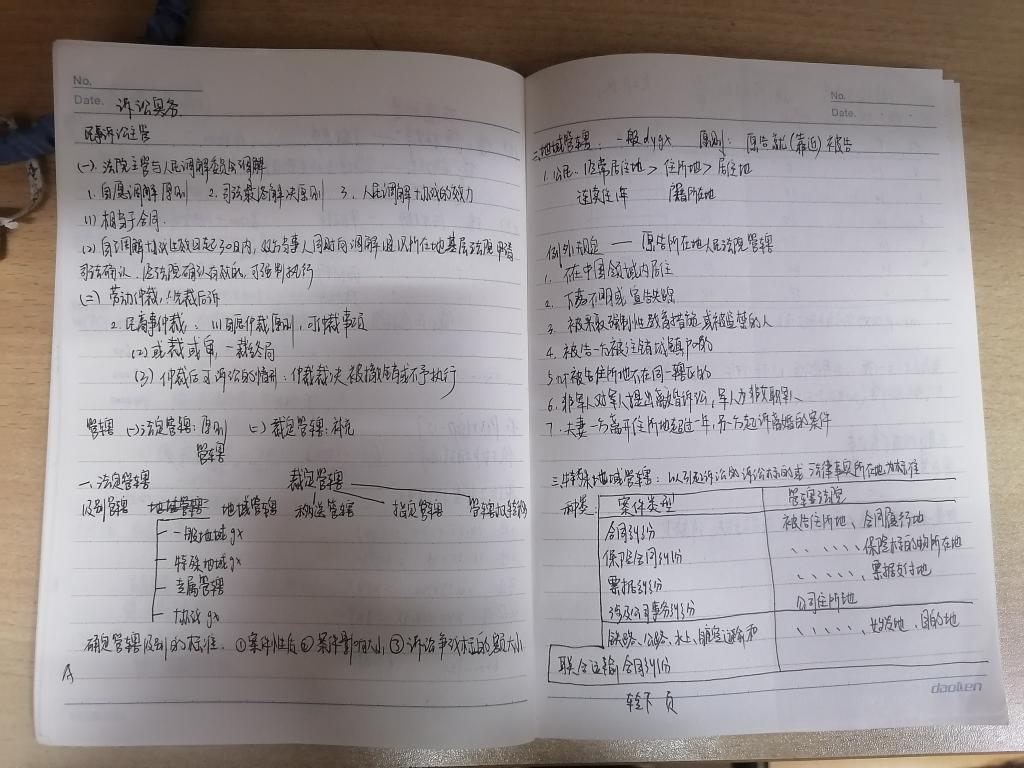 No.
Date. 诉讼实务
民事诉讼主管
(一). 法院主管与人民调解委员会调解
1. 自愿调解原则 2. 司法最终解决原则 3. 人民调解协议的效力
(1) 相当于合同.
(2) 自调解协议生效日起30日内，双方当事人同时向调解组织所在地基层法院申请
司法确认，经法院确认有效的，可强制执行
(二) 劳动仲裁，先裁后诉
2. 民商事仲裁. (1) 自愿仲裁原则，可仲裁事项
(2) 或裁或审，一裁终局
(3) 仲裁后可诉讼的情形：仲裁裁决被撤销或不予执行
管辖 (一) 法定管辖：原则 (二) 裁定管辖：补充
管辖
一. 法定管辖 裁定管辖
级别管辖 地域管辖 地域管辖 移送管辖 指定管辖 管辖权转移
一般地域gx
特殊地域gx
专属管辖
协议gx
确定管辖级别的标准. ①案件性质 ②案件影响大小 ③诉讼争议标的的额大小
A
No.
Date.
二. 地域管辖. 一般dygx 原则: 原告就(靠近)被告
1. 公民. 经常居住地 > 住所地 > 居住地
连续住1年 户籍所在地
例外规定 —— 原告所在地人民法院管辖
1. 不在中国领域内居住
2. 下落不明或宣告失踪
3. 被采取强制性教育措施或被监禁的人
4. 被告一方被注销城镇户口的
5. 对被告住所地不在同一辖区的
6. 非军人对军人提出离婚诉讼，军人为非文职军人
7. 夫妻一方离开住所地超过一年，另一方起诉离婚的案件
三. 特殊地域管辖: 以引起诉讼的诉讼标的或法律事实所在地为标准
种类: 案件类型 管辖法院
合同纠纷 被告住所地、合同履行地
保险合同纠纷 、、、、、、保险标的物所在地
票据纠纷 、、、、、、票据支付地
涉及公司事务纠纷 公司住所地
铁路、公路、水上、航空运输和 、、、、、、始发地、目的地
联合运输合同纠纷
转下页
daolien